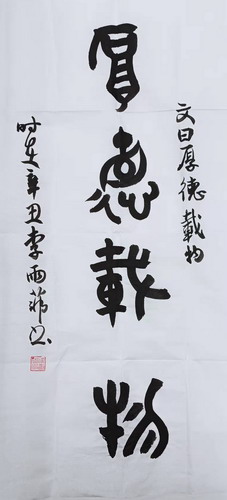 文曰厚德載物
厚德載物
时在辛丑李雨菲书